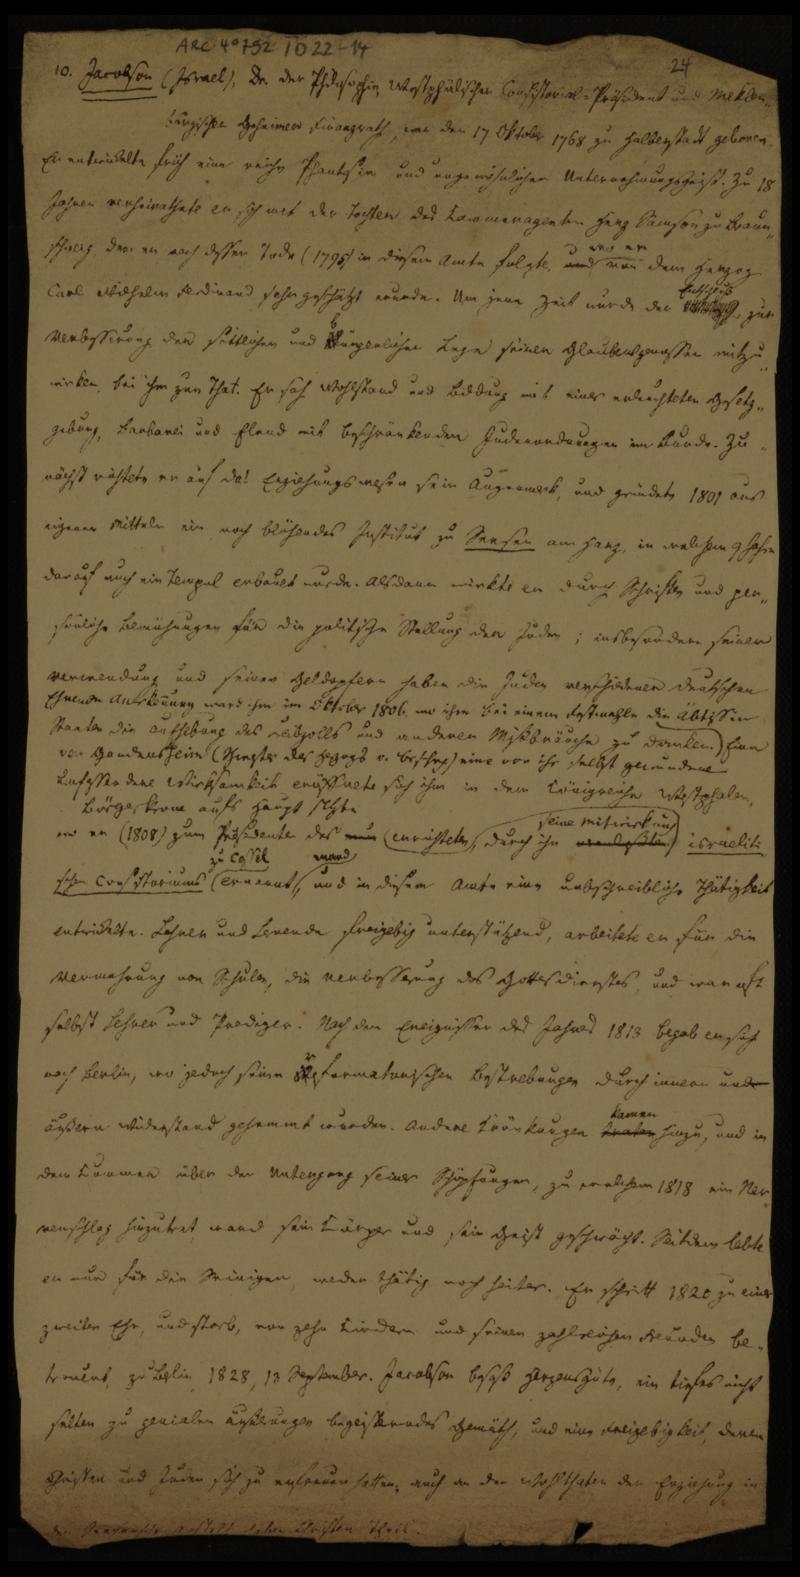 ARC 4° 792 ID 22-14
24
10. Jacobson (Israel), Dr. der Philosophie, Westphälischer Consistorial-Präsident und Meklen„
burgischer Geheimer Finanzrath, war den 17 Oktober 1768 zu Halberstadt geboren.
Er entwickelte früh eine reiche Phantasie und ungewöhnlichen Unternehmungsgeist. Zu 18
Jahren verheirathete er sich mit der Tochter des Kammeragenten Herz Samson zu Braun„
schweig, dem er nach dessen Tode (1795) in diesem Amte folgte, u wo er
und von dem Herzog
Carl Wilhelm Ferdinand sehr geschätzt wurde. Um jene Zeit wurde der Entschluß, zur
Verbesserung der sittlichen und bürgerlichen Lage seiner Glaubensgenossen mitzu„
wirken, bei ihm zur That. Er sah Wohlstand und Bildung mit einer erleuchteten Gesetz„
gebung, Barbarei und Elend mit beschränkenden Judenordnungen im Bunde. Zu„
nächst richtete er auf das Erziehungswesen sein Augenmerk, und gründete 1801 aus
eigenen Mitteln ein noch blühendes Institut zu Seesen am Harz, in welchem 9 Jahre
darauf auch ein Tempel erbauet wurde. Alsdann wirkte er durch Schriften und per„
sönliche Bemühungen für die politische Stellung der Juden; insbesondere seiner
Verwendung und seinen Geldopfern haben die Juden verschiedener deutschen
Ehrende Anerkennung ward ihm im Oktober 1806, wo ihm bei einem Festmahle die Äbtissin
Staaten die Aufhebung des Leibzolls und anderer Mißbräuche zu danken. Eine
von Gandersheim (Schwester des Herzogs v. Braunschw) eine von ihr selbst gewundene
umfassendere Wirksamkeit eröffnete sich ihm in dem Königreiche Westphalen,
Bürgerkrone aufs Haupt setzte
wo er (1808) zum Präsidenten des neu errichteten, durch ihn seine Mitwirkung veranlaßten israeliti
schen Consistoriums zu Cassel ernannt ward, und in diesem Amte eine unbeschreibliche Thätigkeit
entwickelte. Lehrer und Lernende freigebig unterstützend, arbeitete er für die
Vermehrung von Schulen, die Verbesserung des Gottesdienstes, und war oft
selbst Lehrer und Prediger. Nach den Ereignissen des Jahres 1813 begab er sich
nach Berlin, wo jedoch seine reformatorischen Bestrebungen durch innern und
äußern Widerstand gehemmt wurden. Andere Kränkungen traten kamen hinzu, und in
dem Kummer über den Untergang seiner Schöpfungen, zu welchem 1818 ein Ner
venschlag hinzutrat, ward sein Körper und sein Geist geschwächt. Seitdem lebte
er nur für die Seinigen, weder thätig noch heiter. Er schritt 1820 zu einer
zweiten Ehe, und starb, von zehn Kindern und seinen zahlreichen Freunden be„
trauert, zu Berlin 1828, 13 September. Jacobson besaß Herzensgüte, ein tiefes nicht
selten zu genialen Äußerungen begeisterndes Gemüth, und eine Freigebigkeit, deren
Christen und Juden sich zu erfreuen hatten; auch an den Wohlthaten der Erziehung in
der Seesenschen Anstalt haben Christen Theil.